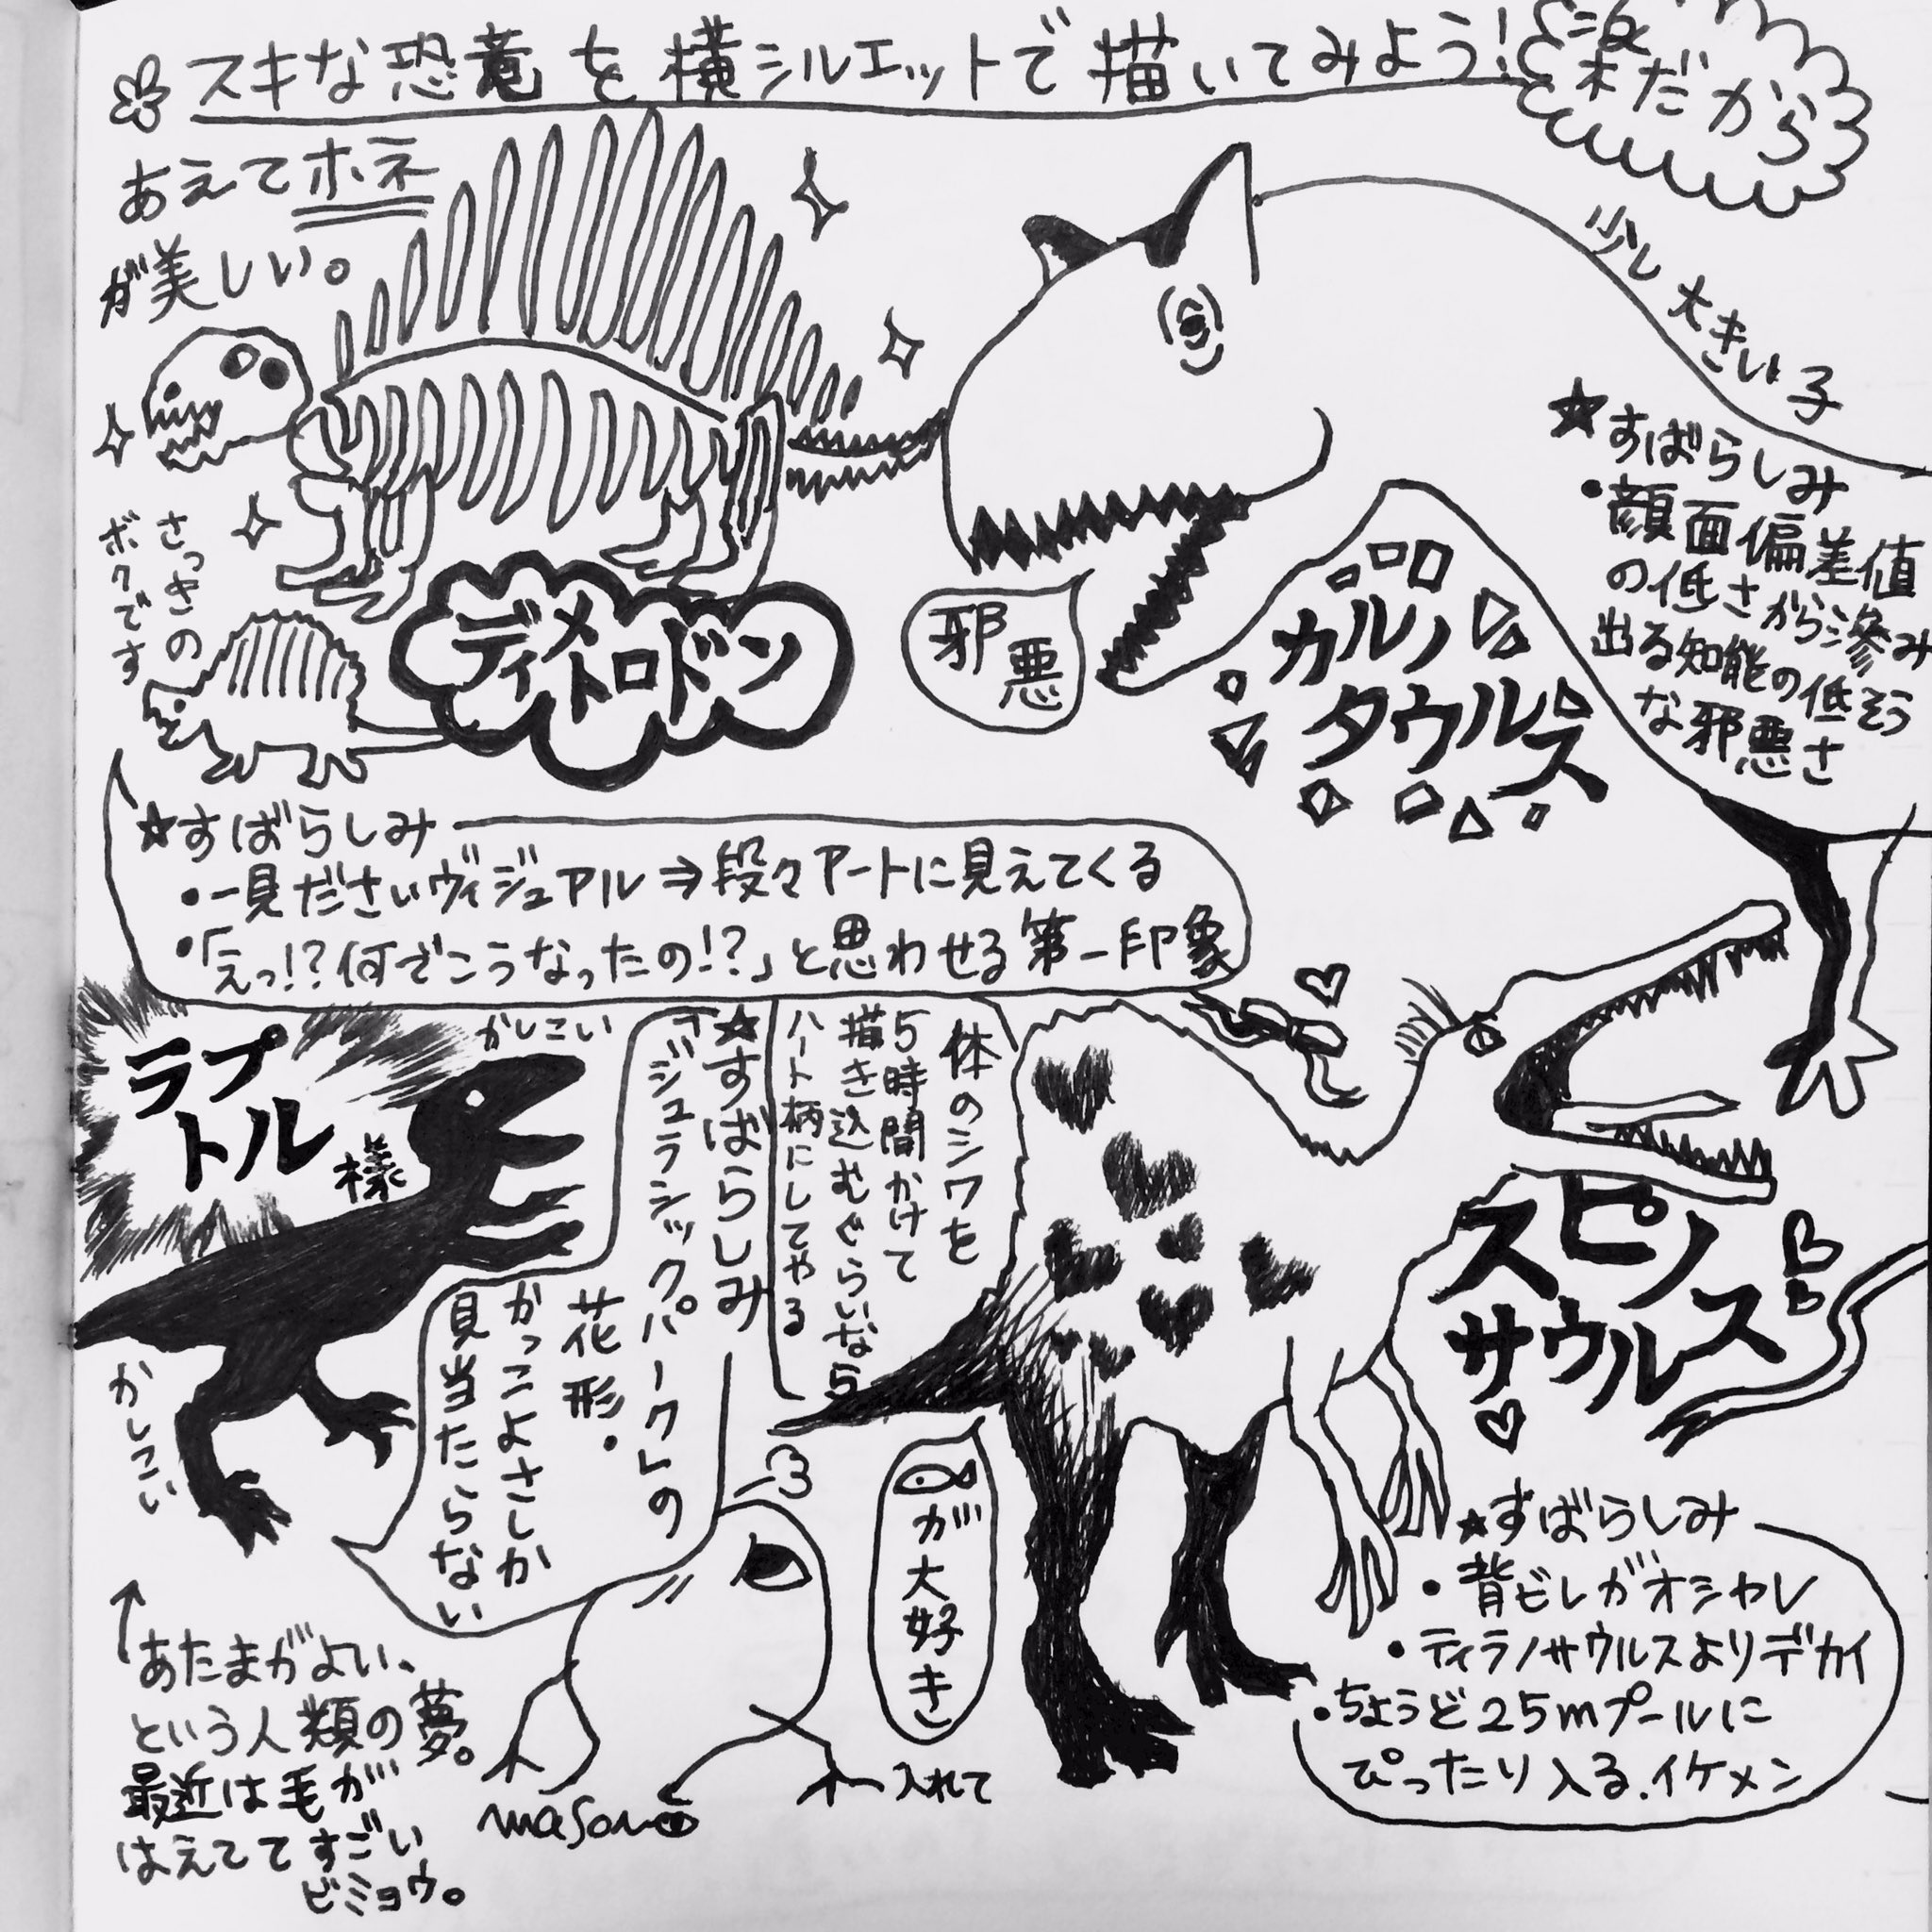 スキな恐竜を横シルエットで描いてみよう!
楽だから
あえてホネ
が美しい。
さっきの
ボクです
ディメ
トロドン
少し大きい子
邪悪
カルノ
タウルス
☆すばらしみ
・顔面偏差値
の低さから滲み
出る知能の低そう
な邪悪さ
☆すばらしみ
・一見ださいヴィジュアル⇒段々アートに見えてくる
・「えっ!?何でこうなったの!?」と思わせる第一印象
ラプ
トル様
かしこい
かしこい
☆すばらしみ
「ジュラシックパーク」の
花形・
かっこよさしか
見当たらない
↑あたまがよい、
という人類の夢。
最近は毛が
はえててすごい
ビミョウ。
体のシワを
5時間かけて
描き込むぐらいなら
ハート柄にしてやる
スピノ
サウルス
が大好き
☆すばらしみ
・背ビレがオシャレ
・ティラノサウルスよりデカイ
・ちょうど25mプールに
ぴったり入る.イケメン
入れて
masono